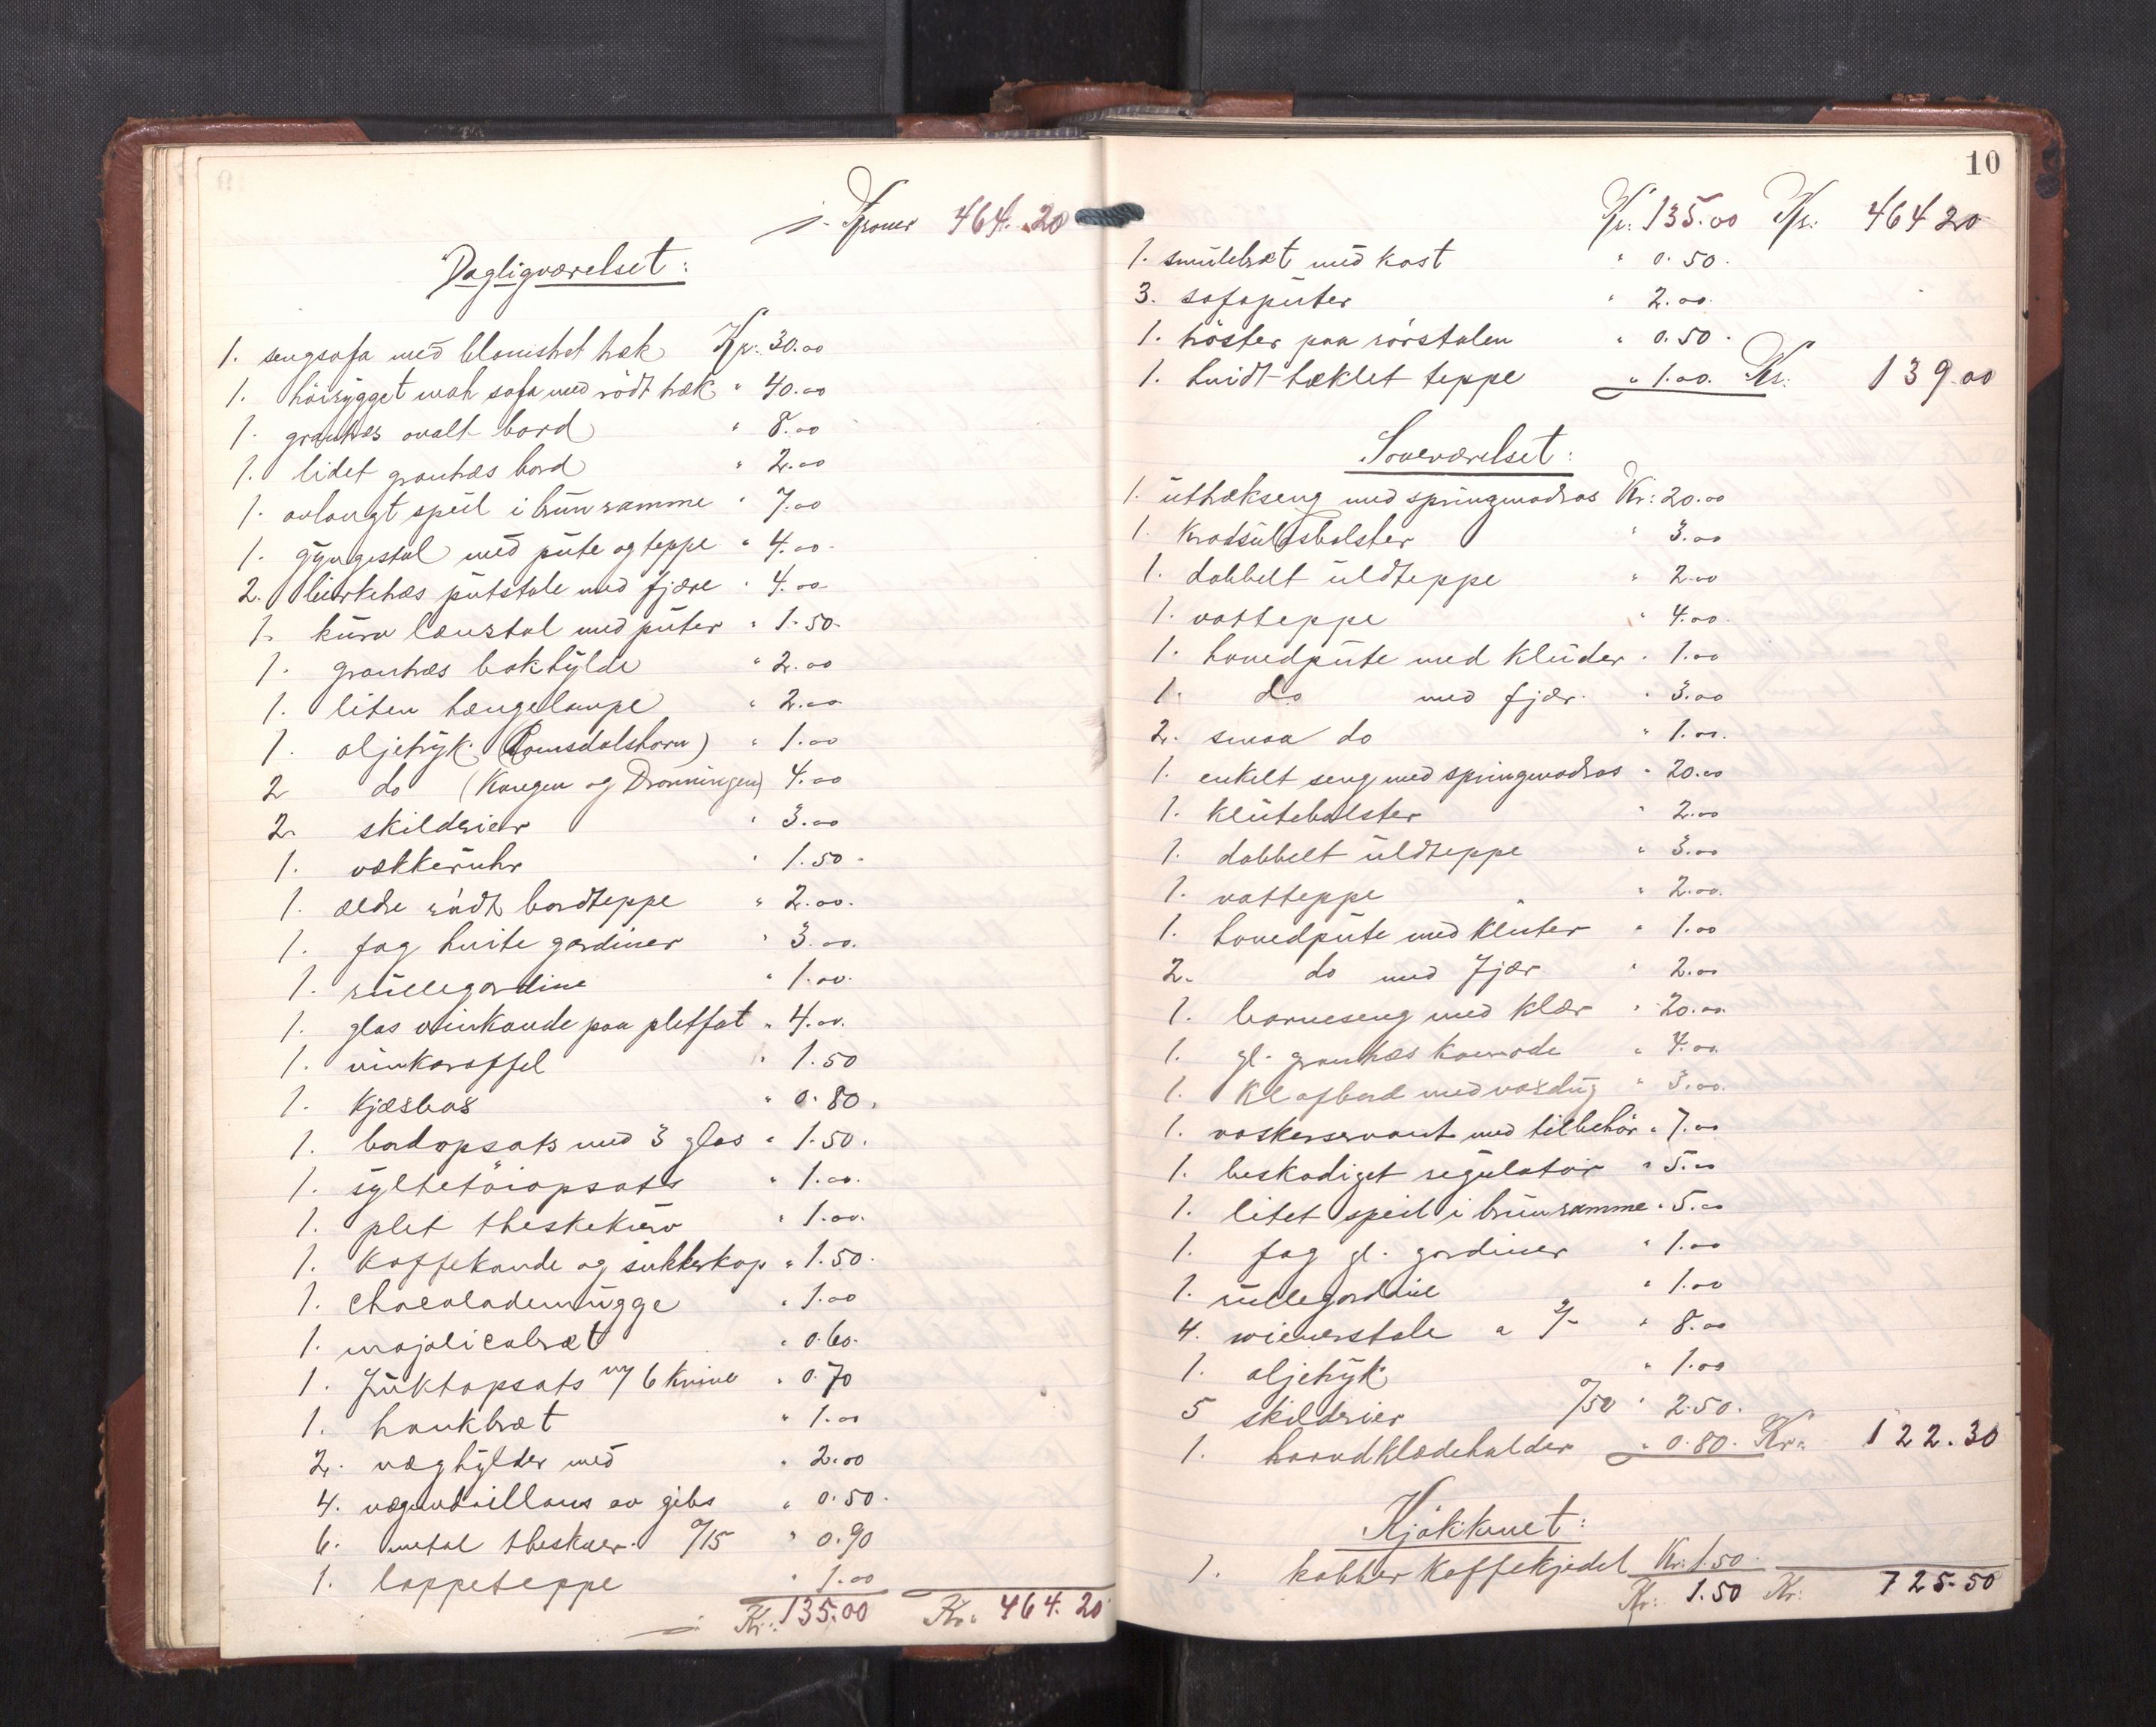 Kroner 464.20
Dagligværelset:
1. sengsofa med blomstret træk Kr: 30.00
1. höirygget mah sofa med rödt træk " 40.00
1. grantræs ovalt bord " 8.00
1. lidet grantræs bord " 2.00
1. avlangt speil i brun ramme " 7.00
1. gyngestol med pute og teppe " 4.00
2. birketræs putstole med fjære " 4.00
1. kurv lænstol med puter " 1.50
1. grantræs bokhylde " 2.00
1. liten hængelampe " 2.00
1. oljetryk (Romsdalshorn) " 1.00
2 do (Kongen og Dronningen) 4.00
2. skilderier " 3.00
1. vækkeruhr " 1.50
1. ældre rödt bordteppe " 2.00.
1. fag hvite gardiner " 3.00.
1. rullegardine " 1.00.
1. glas vinkande paa pletfat " 4.00.
1. vinkaraffel " 1.50
1. Kjæsbas " 0.80.
1. bordopsats med 3 glas " 1.50.
1. syltetöiopsats " 1.00.
1. plet theskekurv " 1.00.
1. Kaffekande og sukkerkop " 1.50.
1. Chocolademugge " 1.00
1. majolicabræt " 0.60.
1. Fruktopsats m/ 6 knive " 0.70
1. bræt " 1.00
2. væghylder med " 2.00
4. av gibs " 0.50.
6. metal theskeer. a/15 " 0.90
1. lappeteppe " 1.00
Kr: 135.00 Kr: 464.20
10
Kr: 135.00 Kr: 464 20
1. smulebræt med kost " 0.50.
3. sofaputer " 2.00.
1. paa rörstolen " 0.50.
1. hvidt hæklet teppe " 1.00. Kr: 139.00
Soveværelset:
1. uttrækseng med springmadras Kr: 20.00
1. Kradsuldsbolster " 3.00
1. dobbelt uldteppe " 2.00
1. vatteppe " 4.00
1. hovedpute med kluder " 1.00
1. do med fjær. " 3.00
2. smaa do " 1.00.
1. enkelt seng med springmadras " 20.00
1. Klutebolster " 2.00
1. dobbelt uldteppe " 3.00
1. vatteppe " 2.00.
1. hovedpute med kluter " 1.00
2. do med fjær " 2.00
1. barneseng med klær " 20.00
1. gl. grantræs komode " 4.00
1. Klafbord med voxdug " 3.00.
1. vaskerservant med tilbehör " 7.00
1. beskadiget regulator " 5.00
1. litet speil i brun ramme " 5.00
1. fag gl. gardiner " 1.00
1. rullegardine " 1.00
4. wienerstole a 2/- " 8.00
1. oljetryk " 1.00
5 skilderier a/50 " 2.50.
1. haandklædeholder " 0.80. Kr: 122.30
Kjökkenet:
1. kobber kaffekjedel Kr: 1.50.
Kr: 1.50 Kr: 725.50